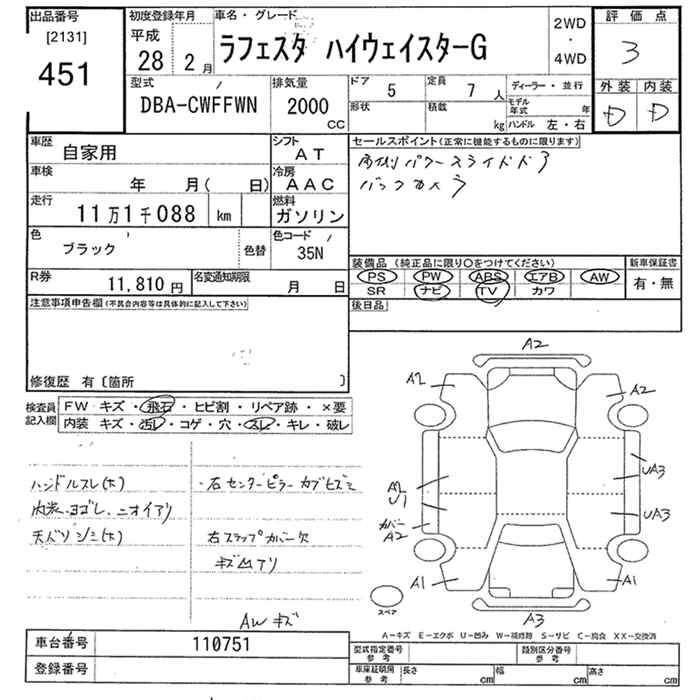 出品番号
[2131]
451
初度登録年月
平成
28 2月
車名・グレード
ラフェスタ ハイウェイスターG
2WD
・
4WD
評価点
3
外装 内装
D D
型式
DBA-CWFFWN
排気量
2000
CC
ドア 5
定員 7人
ディーラー・並行
形状
積載 kg
モデル年式 年
ハンドル 左・右
車歴 自家用
シフト AT
セールスポイント(正常に機能するものに限ります)
両側パワースライドドア
バックカメラ
車検 年 月( 日)
冷房 AAC
走行 11万1千088 km
燃料 ガソリン
色 ブラック 色替
色コード 35N
装備品 (純正品に限り○をつけてください)
新車保証書
PS PW ABS エアB AW
SR ナビ TV カワ
有・無
R券 11,810円
名変通知期限 月 日
後日品
注意事項申告欄(不具合内容等は具体的に記入して下さい)
修復歴 有〔箇所 〕
検査員記入欄
FW キズ・飛石・ヒビ割・リペア跡・×要
内装 キズ・汚レ・コゲ・穴・スレ・キレ・破レ
ハンドルスレ(大)
内装ヨゴレ、ニオイアリ
天バリシミ(大)
右センターピラーカブヒズミ
右ステップカバー欠
キズ凹アリ
AWキズ
A2
A2
A2
A2
U1
カバー
A2
UA3
UA3
A1
A1
A3
スペア
A-キズ E-エクボ U-凹み W-補修跡 S-サビ C-腐食 XX-交換済
車台番号 110751
登録番号
型式指定番号
参考
類別区分番号
参考
車庫証明用
参考
長さ cm
幅 cm
高さ cm